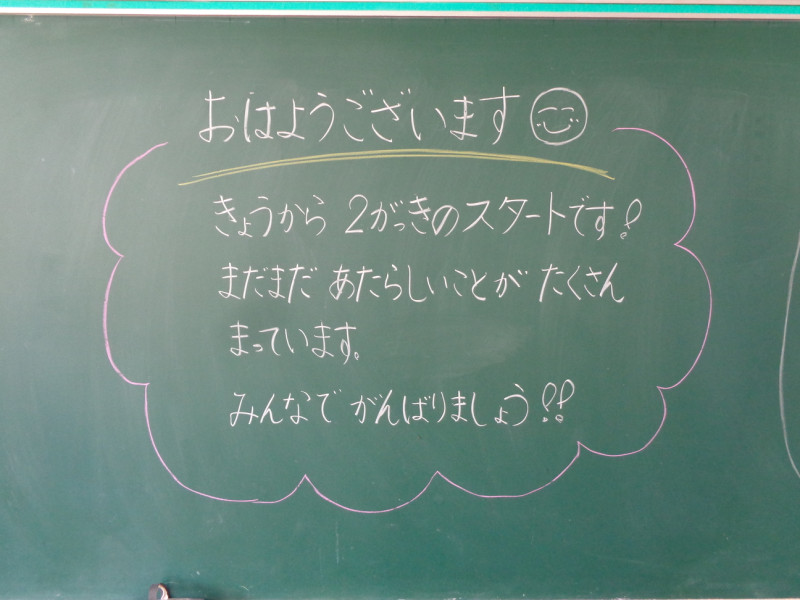 おはようございます
きょうから 2がっきのスタートです!
まだまだ あたらしいことが たくさん
まっています。
みんなで がんばりましょう!!